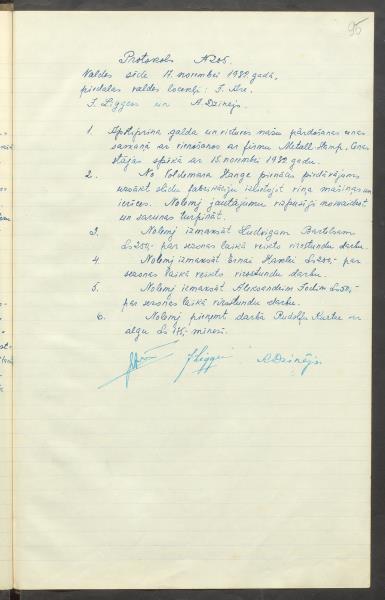 95
Protokols №205.
Valdes sēde 17. novembrī 1932. gadā,
piedalās valdes locekļi: F. Āre,
F. Liggers un A. Dzinējs.
1. Apstiprina galda un virtuves mašu pārdošanas cenas
saskaņā ar vienošanos ar firmu Metall Kemp. Cenas
stājas spēkā ar 15. novembri 1932. gadu.
2. No Voldemara Hange pienācis piedāvājums
uzsākt slidu fabrikāciju izlietojot viņa mašīnas un
ierīces. Nolemj jautājumu vispusīgi noskaidrot
un sarunas turpināt.
3. Nolemj izmaksāt Ludvigam Bartelsam
Ls 250,- par sezonas laikā veikto virsstundu darbu.
4. Nolemj izmaksāt Ernai Ls 200,- par
sezonas laikā veikto virsstundu darbu.
5. Nolemj izmaksāt Aleksandram Ls 50,-
par sezonas laikā virsstundu darbu.
6. Nolemj pieņemt darbā Rudolfu ar
algu Ls 175,- mēnesī.
A. Dzinējs